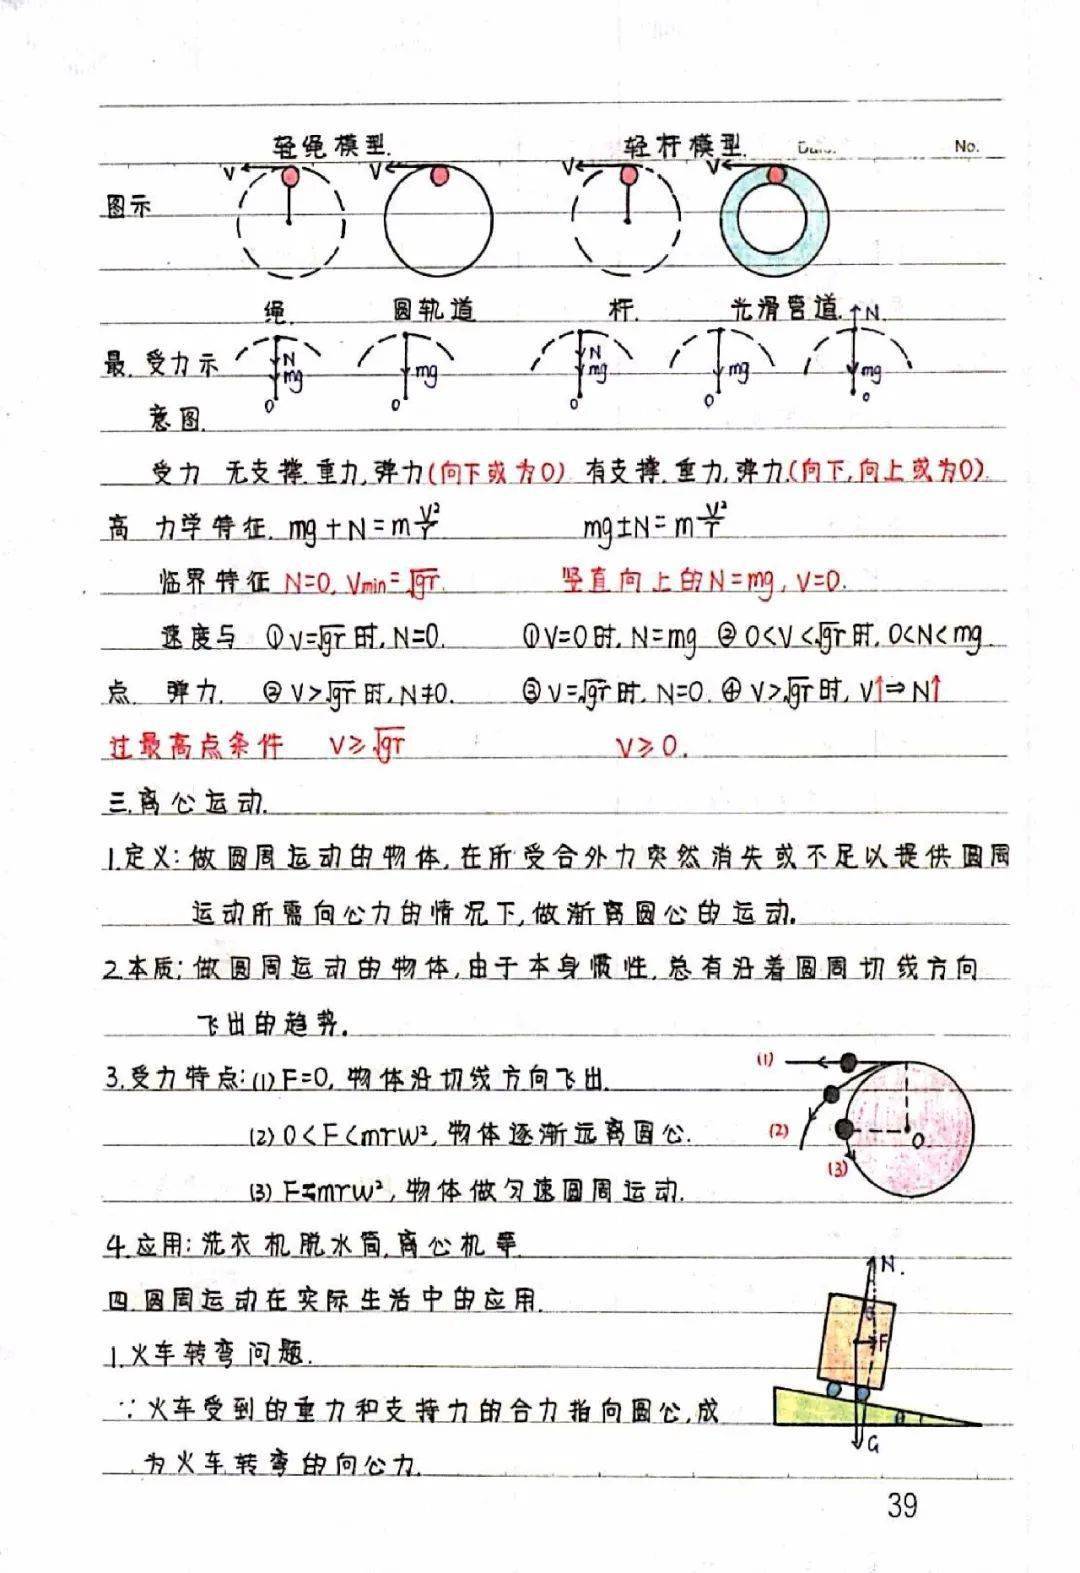 轻绳模型. 轻杆模型. No.
V V V V
图示
绳. 圆轨道 杆. 光滑管道. N.
最. 受力示 N mg O mg O N mg O mg O mg O
意图.
受力 无支撑.重力,弹力(向下或为0) 有支撑.重力,弹力.(向下,向上或为0).
高 力学特征. mg+N=m\frac{V²}{r} mg±N=m\frac{V²}{r}
临界特征 N=0, Vmin=√gr. 竖直向上的N=mg, V=0.
速度与 ①V=√gr时,N=0. ①V=0时,N=mg ②0<V<√gr时,0<N<mg.
点. 弹力. ②V>√gr时,N≠0. ③V=√gr时,N=0. ④V>√gr时,V↑⇒N↑
过最高点条件 V≥√gr V≥0.
三.离心运动.
1.定义:做圆周运动的物体,在所受合外力突然消失或不足以提供圆周
运动所需向心力的情况下,做渐离圆心的运动.
2.本质:做圆周运动的物体,由于本身惯性,总有沿着圆周切线方向
飞出的趋势.
3.受力特点:(1)F=0,物体沿切线方向飞出. (1)
(2) 0<F<mrω²,物体逐渐远离圆心. (2) O
(3) F=mrω²,物体做匀速圆周运动. (3)
4.应用:洗衣机脱水筒,离心机等.
N.
四.圆周运动在实际生活中的应用. θ
1.火车转弯问题. F
∵火车受到的重力和支持力的合力指向圆心,成 θ
为火车转弯的向心力. G
39